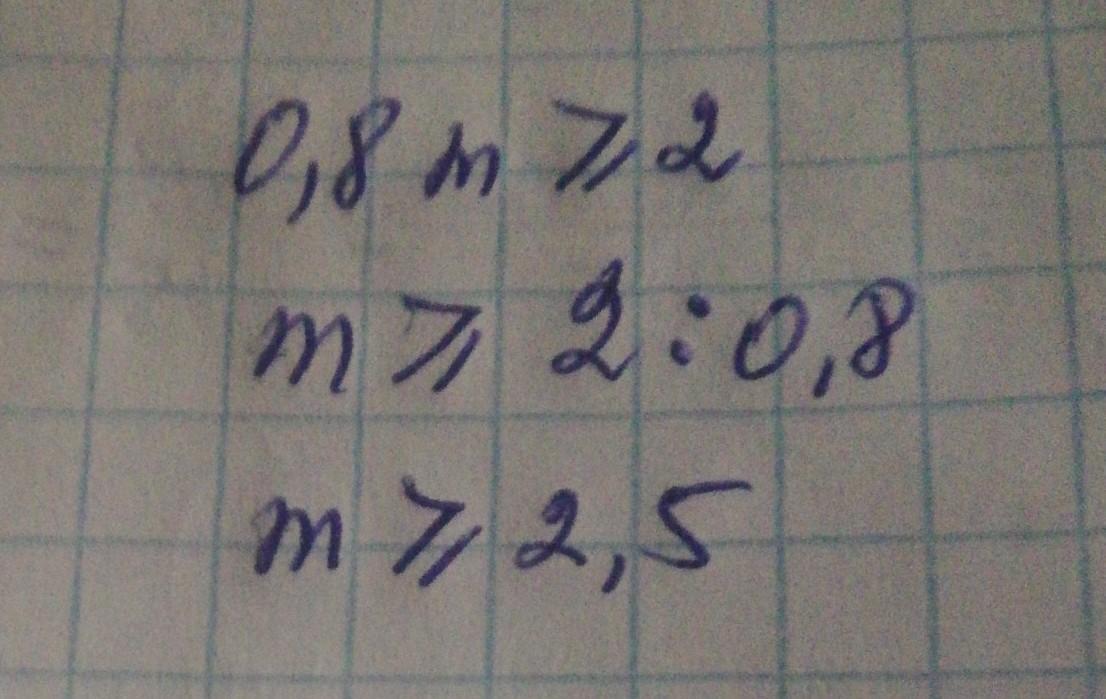 0,8 m ⩾ 2
m ⩾ 2 : 0,8
m ⩾ 2,5